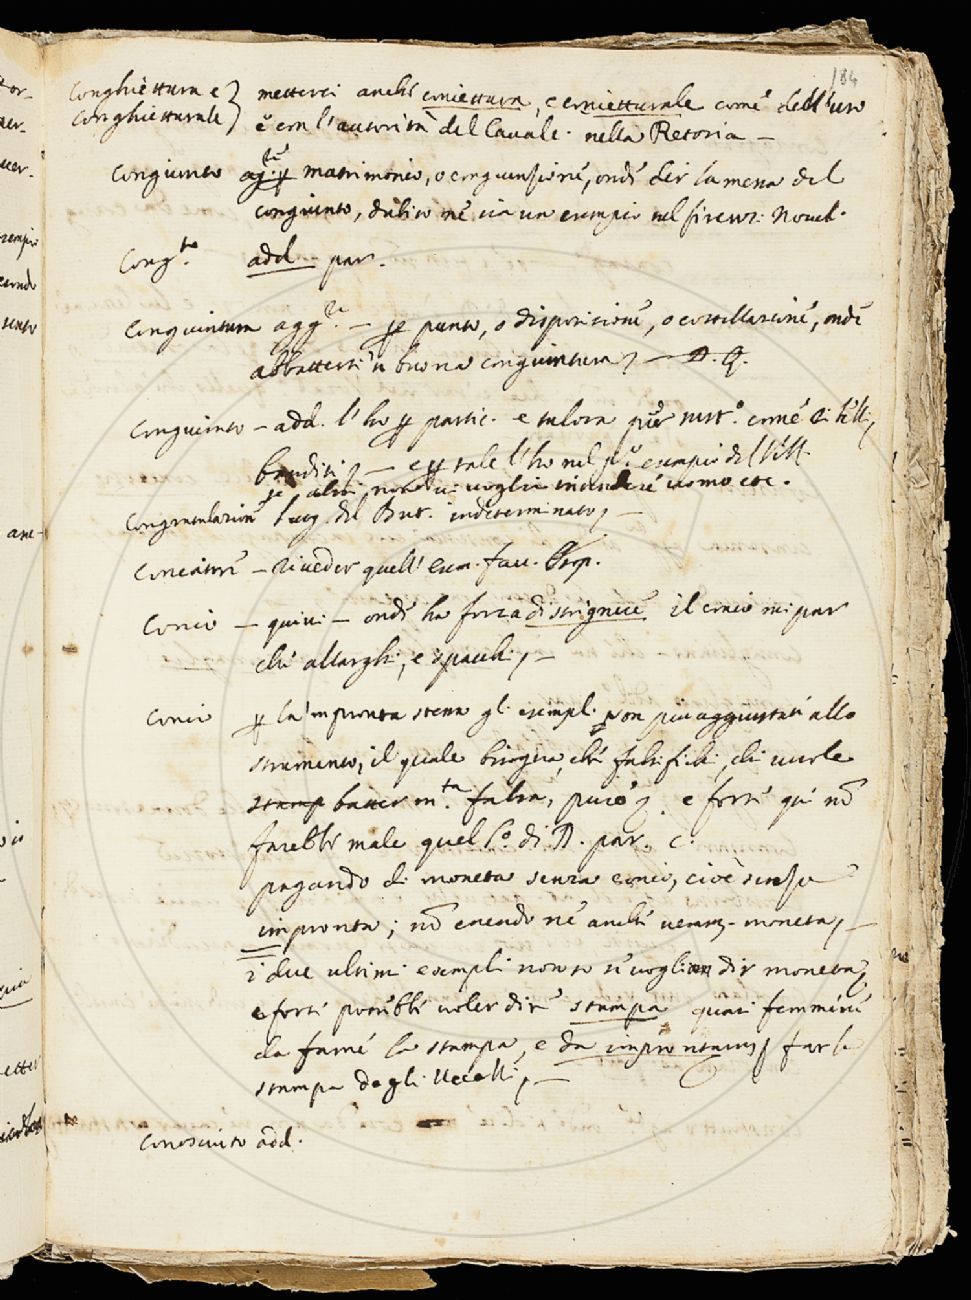 184
Conghiettura e } metterci anche coniettura, e conietturale come dell'uso
Conghietturale } è con l'autorità del Cavalc. nella Retoria —
Congiunto agg.te p matrimonio, o congiunsione, onde dir la messa del
congiunto, dubito ne sia un esempio nel firenz. Novel.
Cong.to add par.
Congiuntura agg.e — p punto, o disposizione, o costellazione, onde
abbattersi a buona congiuntura, —
Congiunto — add. l'ho p partic. e talora per sust.o come
banditi, — e p tale l'ho nel p.o esempio del Vill.
se altri non vi voglia intendere uomo etc.
Congratulazione luog. del But. indeterminato, —
Coniatore — riveder quell' esem. fav. Esop.
Conio — quivi — onde ha forza di strignere il conio mi par
che allarghi, e spacchi, —
Conio p la impronta stessa gl. esempl. son più aggiustati allo
strumento, il quale bisogna, che falsifichi, chi vuole
stamp batter m.ta falsa, purè, e forse qui nō
farebbe male quel l.o di D. par. c.
pagando di moneta senza conio, cioè senza
impronta; nō essendo ne anche vera moneta, —
i due ultimi esempli non so se voglian dir moneta,
e forse potrebbe voler dire stampa quasi femmine
da farne la stampa, e da improntarvi far la
stampa degli Uccelli, —
Conosciuto add.